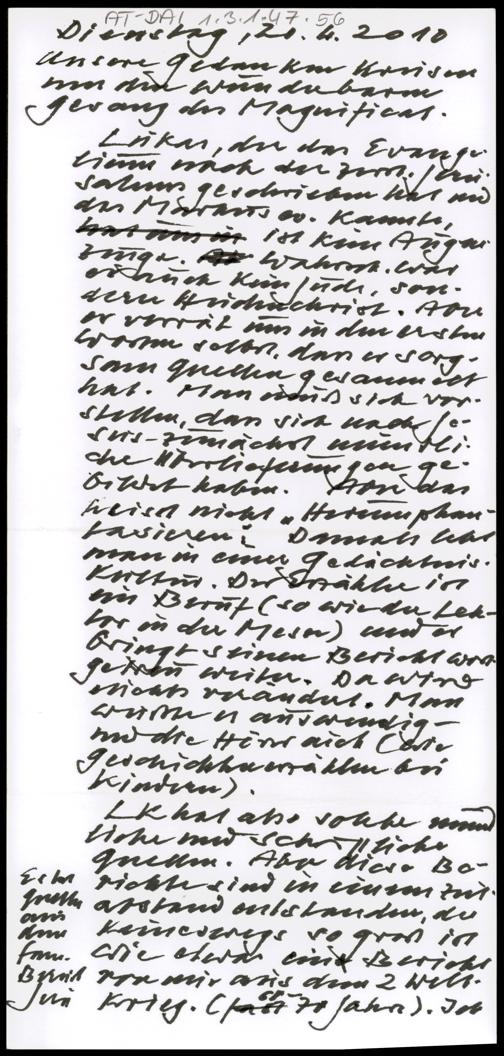 AT-DAI 1.3.1.47.56
Dienstag, 20.4.2010
Unsere Gedanken kreisen
um den wunderbaren
Gesang des Magnificat.
Lukas, der das Evange-
lium nach der Zerst. Jeru-
salems geschrieben hat und
das Markus ev. kannte,
hat uns in ist kein Augen
zeuge. Wahrsch. war
er auch kein Jude, son-
dern Heidenchrist. Aber
er verrät uns in den ersten
Worten selbst, dass er sorg-
sam Quellen gesammelt
hat. Man muß sich vor-
stellen, dass sich nach Je-
sus zunächst mündli-
che Überlieferungen ge-
bildet haben. Aber das
heisst nicht „Herumphan-
tasieren". Damals lebt
man in einer Gedächtnis-
Kultur. Der Erzähler ist
ein Beruf (so wie der Lek-
tor in der Messe) und er
bringt seinen Bericht wort
getreu weiter. Da wird
nichts verändert. Man
wusste es auswendig -
und die Hörer auch (wie
Geschichtenerzählen bei
Kindern).
LK hat also solche münd
liche und schriftliche
Quellen. Aber diese Be-
richte sind in einem Zeit-
abstand entstanden, der
keineswegs so groß ist
wie etwa ein Bericht
von mir aus dem 2 Welt-
Krieg. (fast 70 Jahre). Ich
Es hat
Quellen
aus
dem
Fam.
Bereich